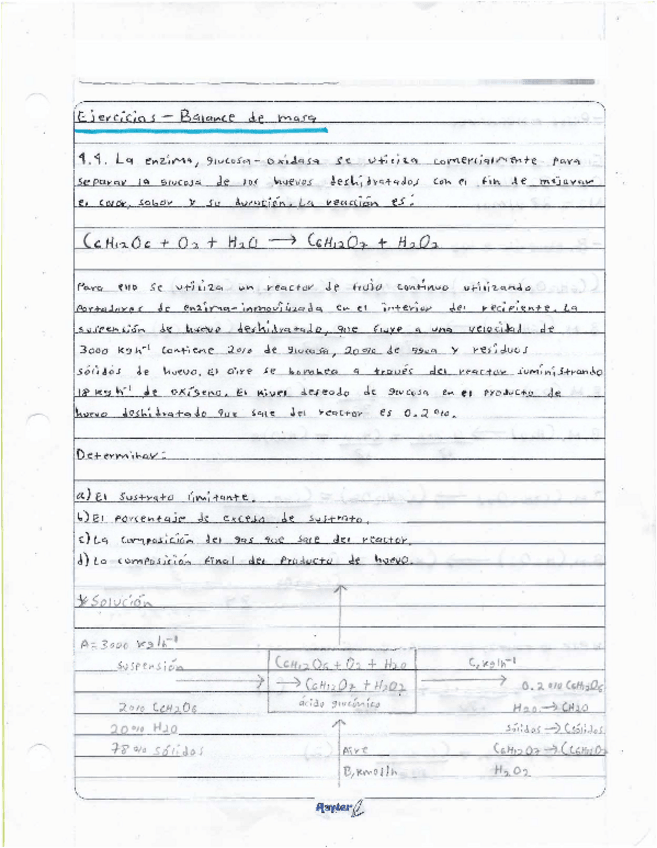 Ejercicios - Balance de masa
4.4. La enzima, glucosa-oxidasa se utiliza comercialmente para
separar la glucosa de los huevos deshidratados con el fin de mejorar
el color, sabor y su duración. La reacción es:
C6H12O6 + O2 + H2O → C6H12O7 + H2O2
Para ello se utiliza un reactor de flujo continuo utilizando
portadores de enzima-inmovilizada en el interior del recipiente. La
suspensión de huevo deshidratado, que fluye a una velocidad de
3000 kg h⁻¹ contiene 2% de glucosa, 20% de agua y residuos
sólidos de huevo. El aire se bombea a través del reactor suministrando
18 kg h⁻¹ de oxígeno. El nivel deseado de glucosa en el producto de
huevo deshidratado que sale del reactor es 0.2%.
Determinar:
a) El sustrato limitante.
b) El porcentaje de exceso de sustrato.
c) La composición del gas que sale del reactor.
d) La composición final del producto de huevo.
* Solución
A = 3000 kg h⁻¹
Suspensión
2% C6H12O6
20% H2O
78% sólidos
C6H12O6 + O2 + H2O
→ C6H12O7 + H2O2
ácido glucónico
Aire
B, kmol/h
C, kg h⁻¹
0.2% C6H12O6
H2O → CH2O
sólidos → Csólidos
C6H12O7 → CC6H12O7
H2O2
Rayter